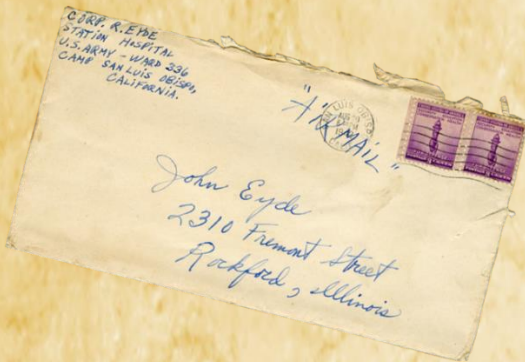 CORP. R. EYDE
STATION HOSPITAL
U.S. ARMY - WARD 336
CAMP SAN LUIS OBISPO,
CALIFORNIA.
"AIR MAIL"
SAN LUIS OBISPO
John Eyde
2310 Fremont Street
Rockford, Illinois